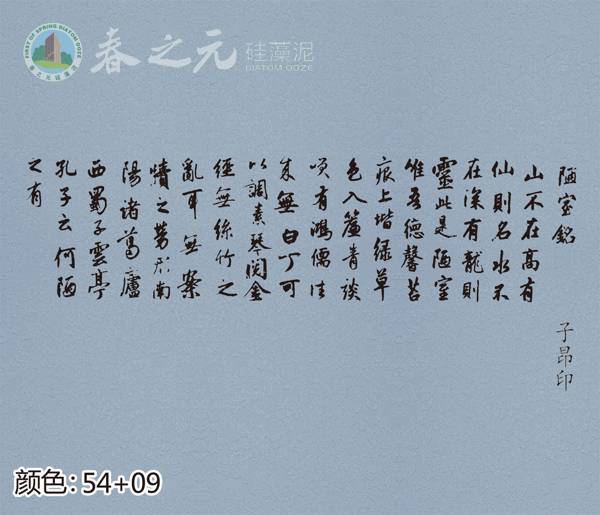 FIRST OF SPRING DIATOM OOZE
春之元硅藻泥
春之元 硅藻泥
DIATOM OOZE
陋室銘
山不在高有
仙則名水不
在深有龍則
靈此是陋室
惟吾德馨苔
痕上堦緑草
色入簾青談
笑有鴻儒往
来無白丁可
以調素琴閲金
經無絲竹之
亂耳無案
牘之勞形南
陽诸葛廬
西蜀子雲亭
孔子云何陋
之有
子昂印
颜色：54+09